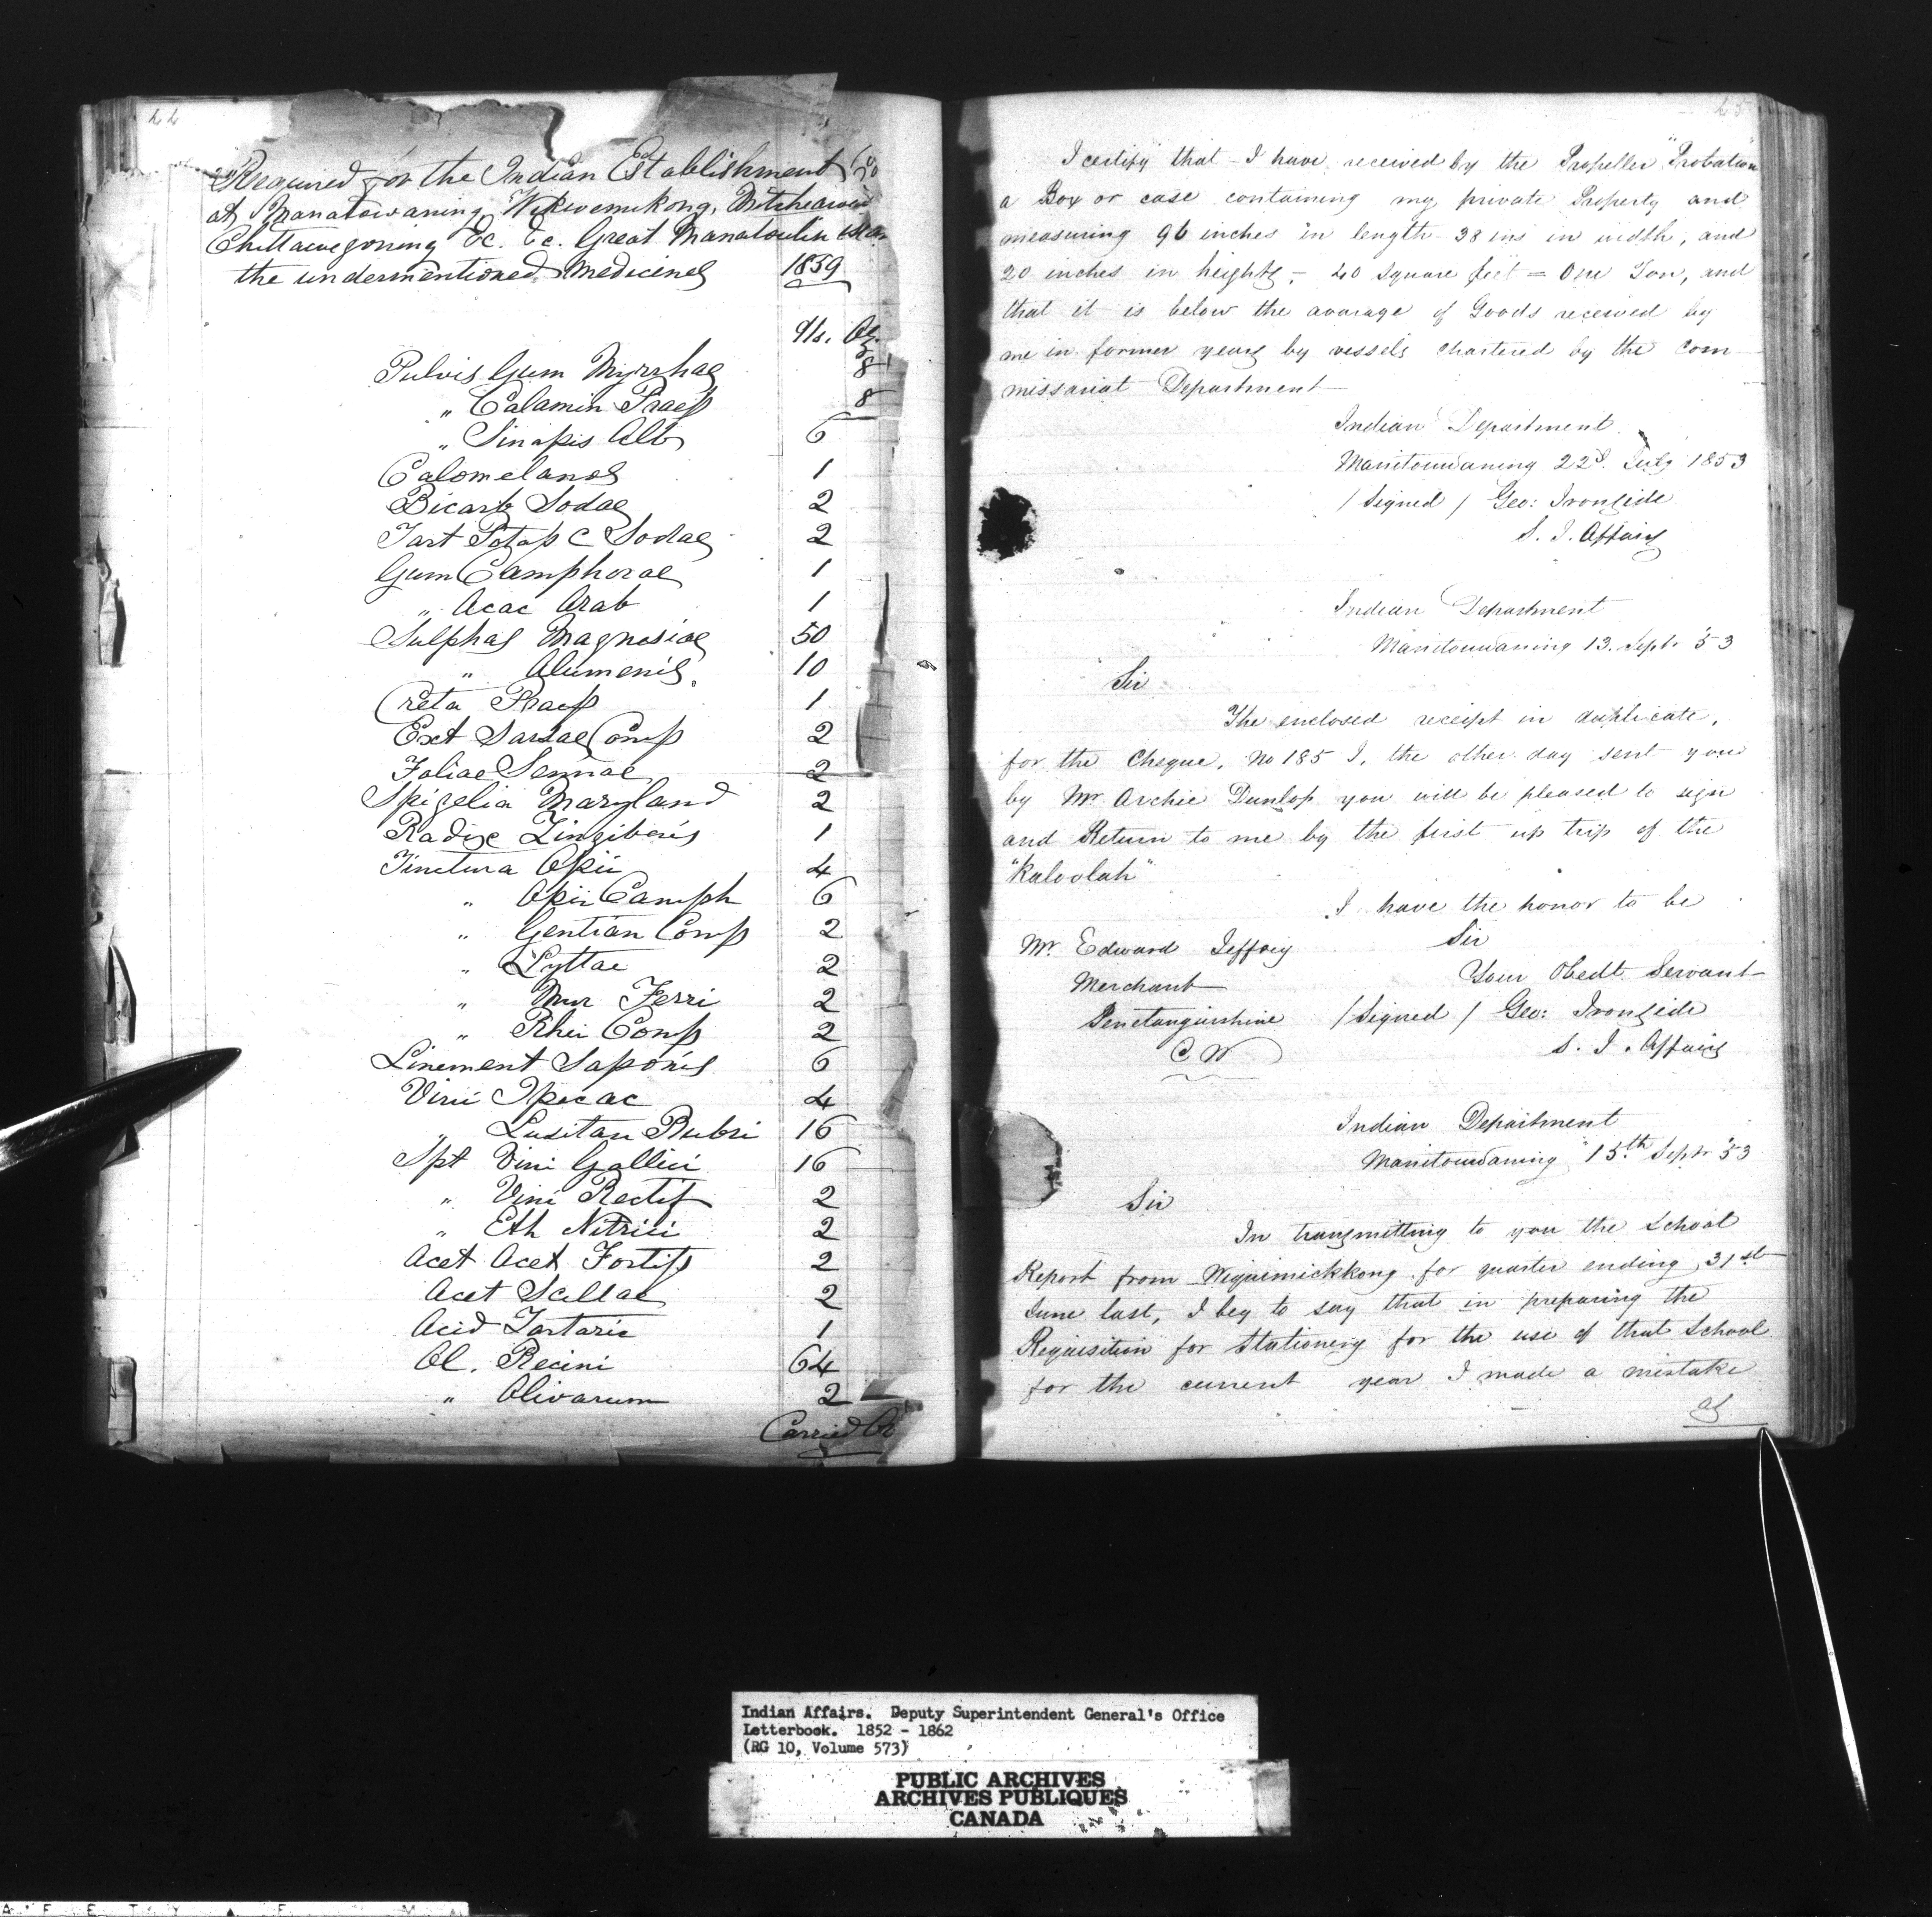 44
Required for the Indian Establishment
at Manatowaning, Wikwemikong, Mitcheawin
Chittawegoning &c. &c. Great Manatoulin
the undermentioned Medicines 1859
lbs. Oz.
Pulvis Gum Myrrhae 8
" Calamin Praep 8
" Sinapis Alb 6
Calomelanos 1
Bicarb Sodae 2
Tart Potass C Sodae 2
Gum Camphorae 1
" Acac Arab 1
Sulphas Magnesiae 50
" Alumenis 10
Creta Praep 1
Ext Sarsae Comp 2
Foliae Sennae 2
Spigelia Maryland 2
Radix Zingiberis 1
Tinctura Opii 4
" Opii Camph 6
" Gentian Comp 2
" Lyttae 2
" Mur Ferri 2
" Rhei Comp 2
Linement Saponis 6
Vini Ipecac 4
" Lusitan Rubri 16
Spt Vini Gallici 16
" Vini Rectif 2
" Eth Nitrici 2
Acet Acet Fortiss 2
Acet Scillae 2
Acid Tartaric 1
Ol. Recini 64
" Olivarum 2
Carried Or
45
I certify that I have received by the Propeller "Probation"
a Box or case containing my private Property and
measuring 96 inches in length 38 ins in width, and
20 inches in height, - 40 square feet = One Ton, and
that it is below the avarage of Goods received by
me in former years by vessels chartered by the Com-
missariat Department
Indian Department
Manitouwaning 22d. July 1853
/ Signed / Geo: Ironside
S. I. Affairs
Indian Department
Manitouwaning 13. Sept. '53
Sir
The enclosed receipt in duplicate,
for the Cheque, No 185 I, the other day sent you
by Mr Archie Dunlop you will be pleased to sign
and Return to me by the first up trip of the
"Kaloolah"
I have the honor to be
Sir
Your Obedt. Servant
Mr. Edward Jeffrey
Merchant
Penetanguishine
C W
/ Signed / Geo: Ironside
S. I. Affairs
Indian Department
Manitouwaning 15.th Septr '53
Sir
In transmitting to you the School
Report from Wequimickkong for quarter ending 31st
June last, I beg to say that in preparing the
Requisition for Stationery for the use of that School
for the current year I made a mistake
as
Indian Affairs. Deputy Superintendent General's Office
Letterbook. 1852 - 1862
(RG 10, Volume 573)
PUBLIC ARCHIVES
ARCHIVES PUBLIQUES
CANADA